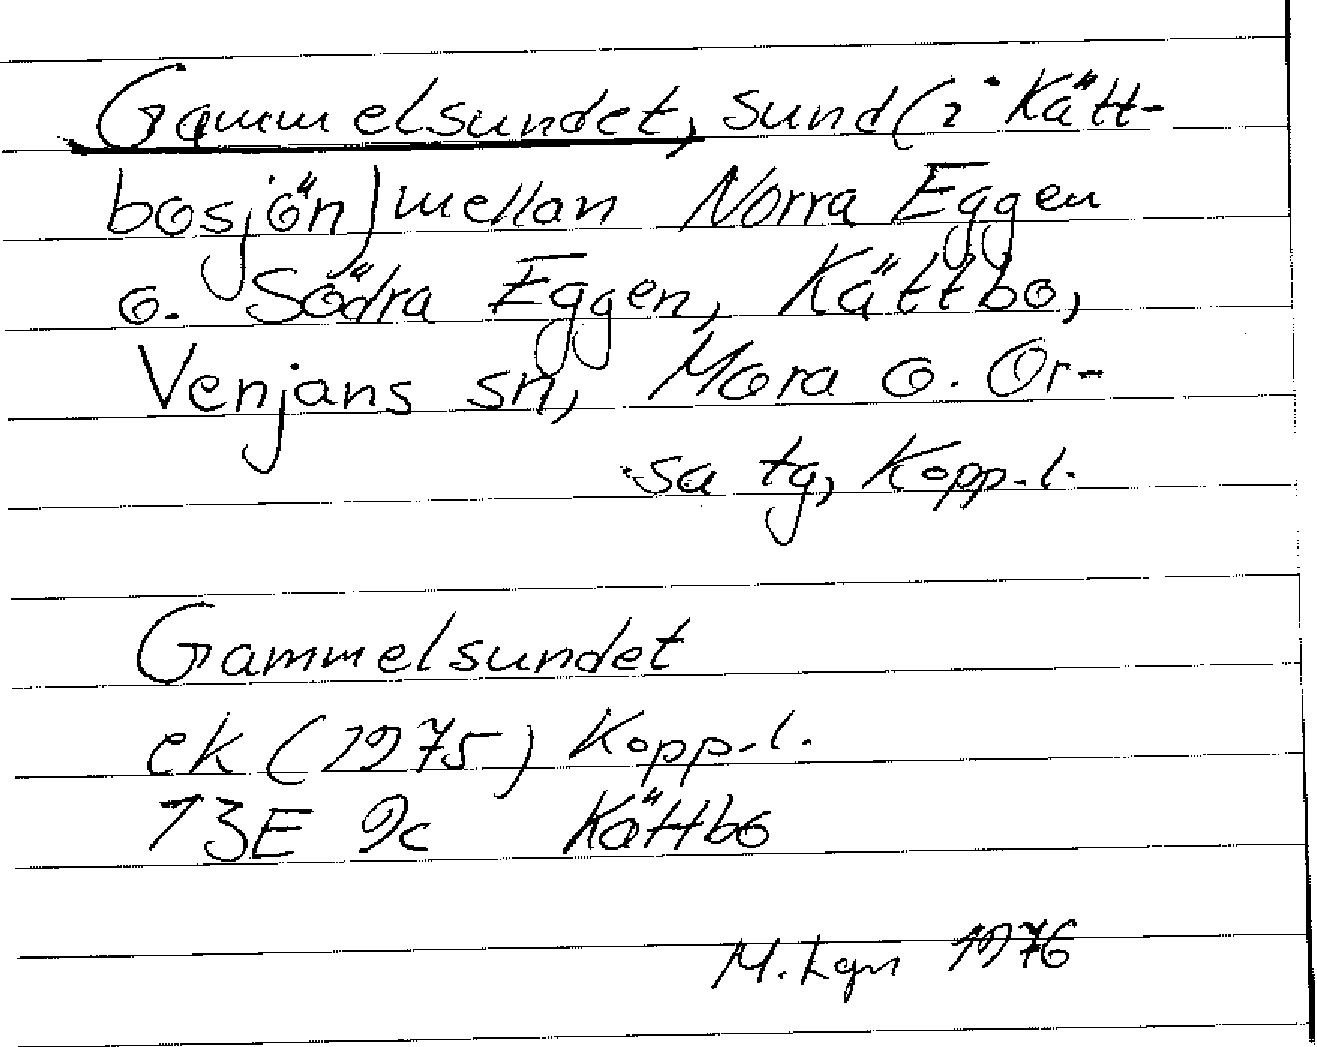 Gammelsundet, sund (i Kätt-
bosjön) mellan Norra Eggen
o. Södra Eggen, Kättbo,
Venjans sn, Mora o. Or-
sa tg, Kopp. l.
Gammelsundet
ek (1975) Kopp. l.
13E 9c Kättbo
M. Lgn 1976